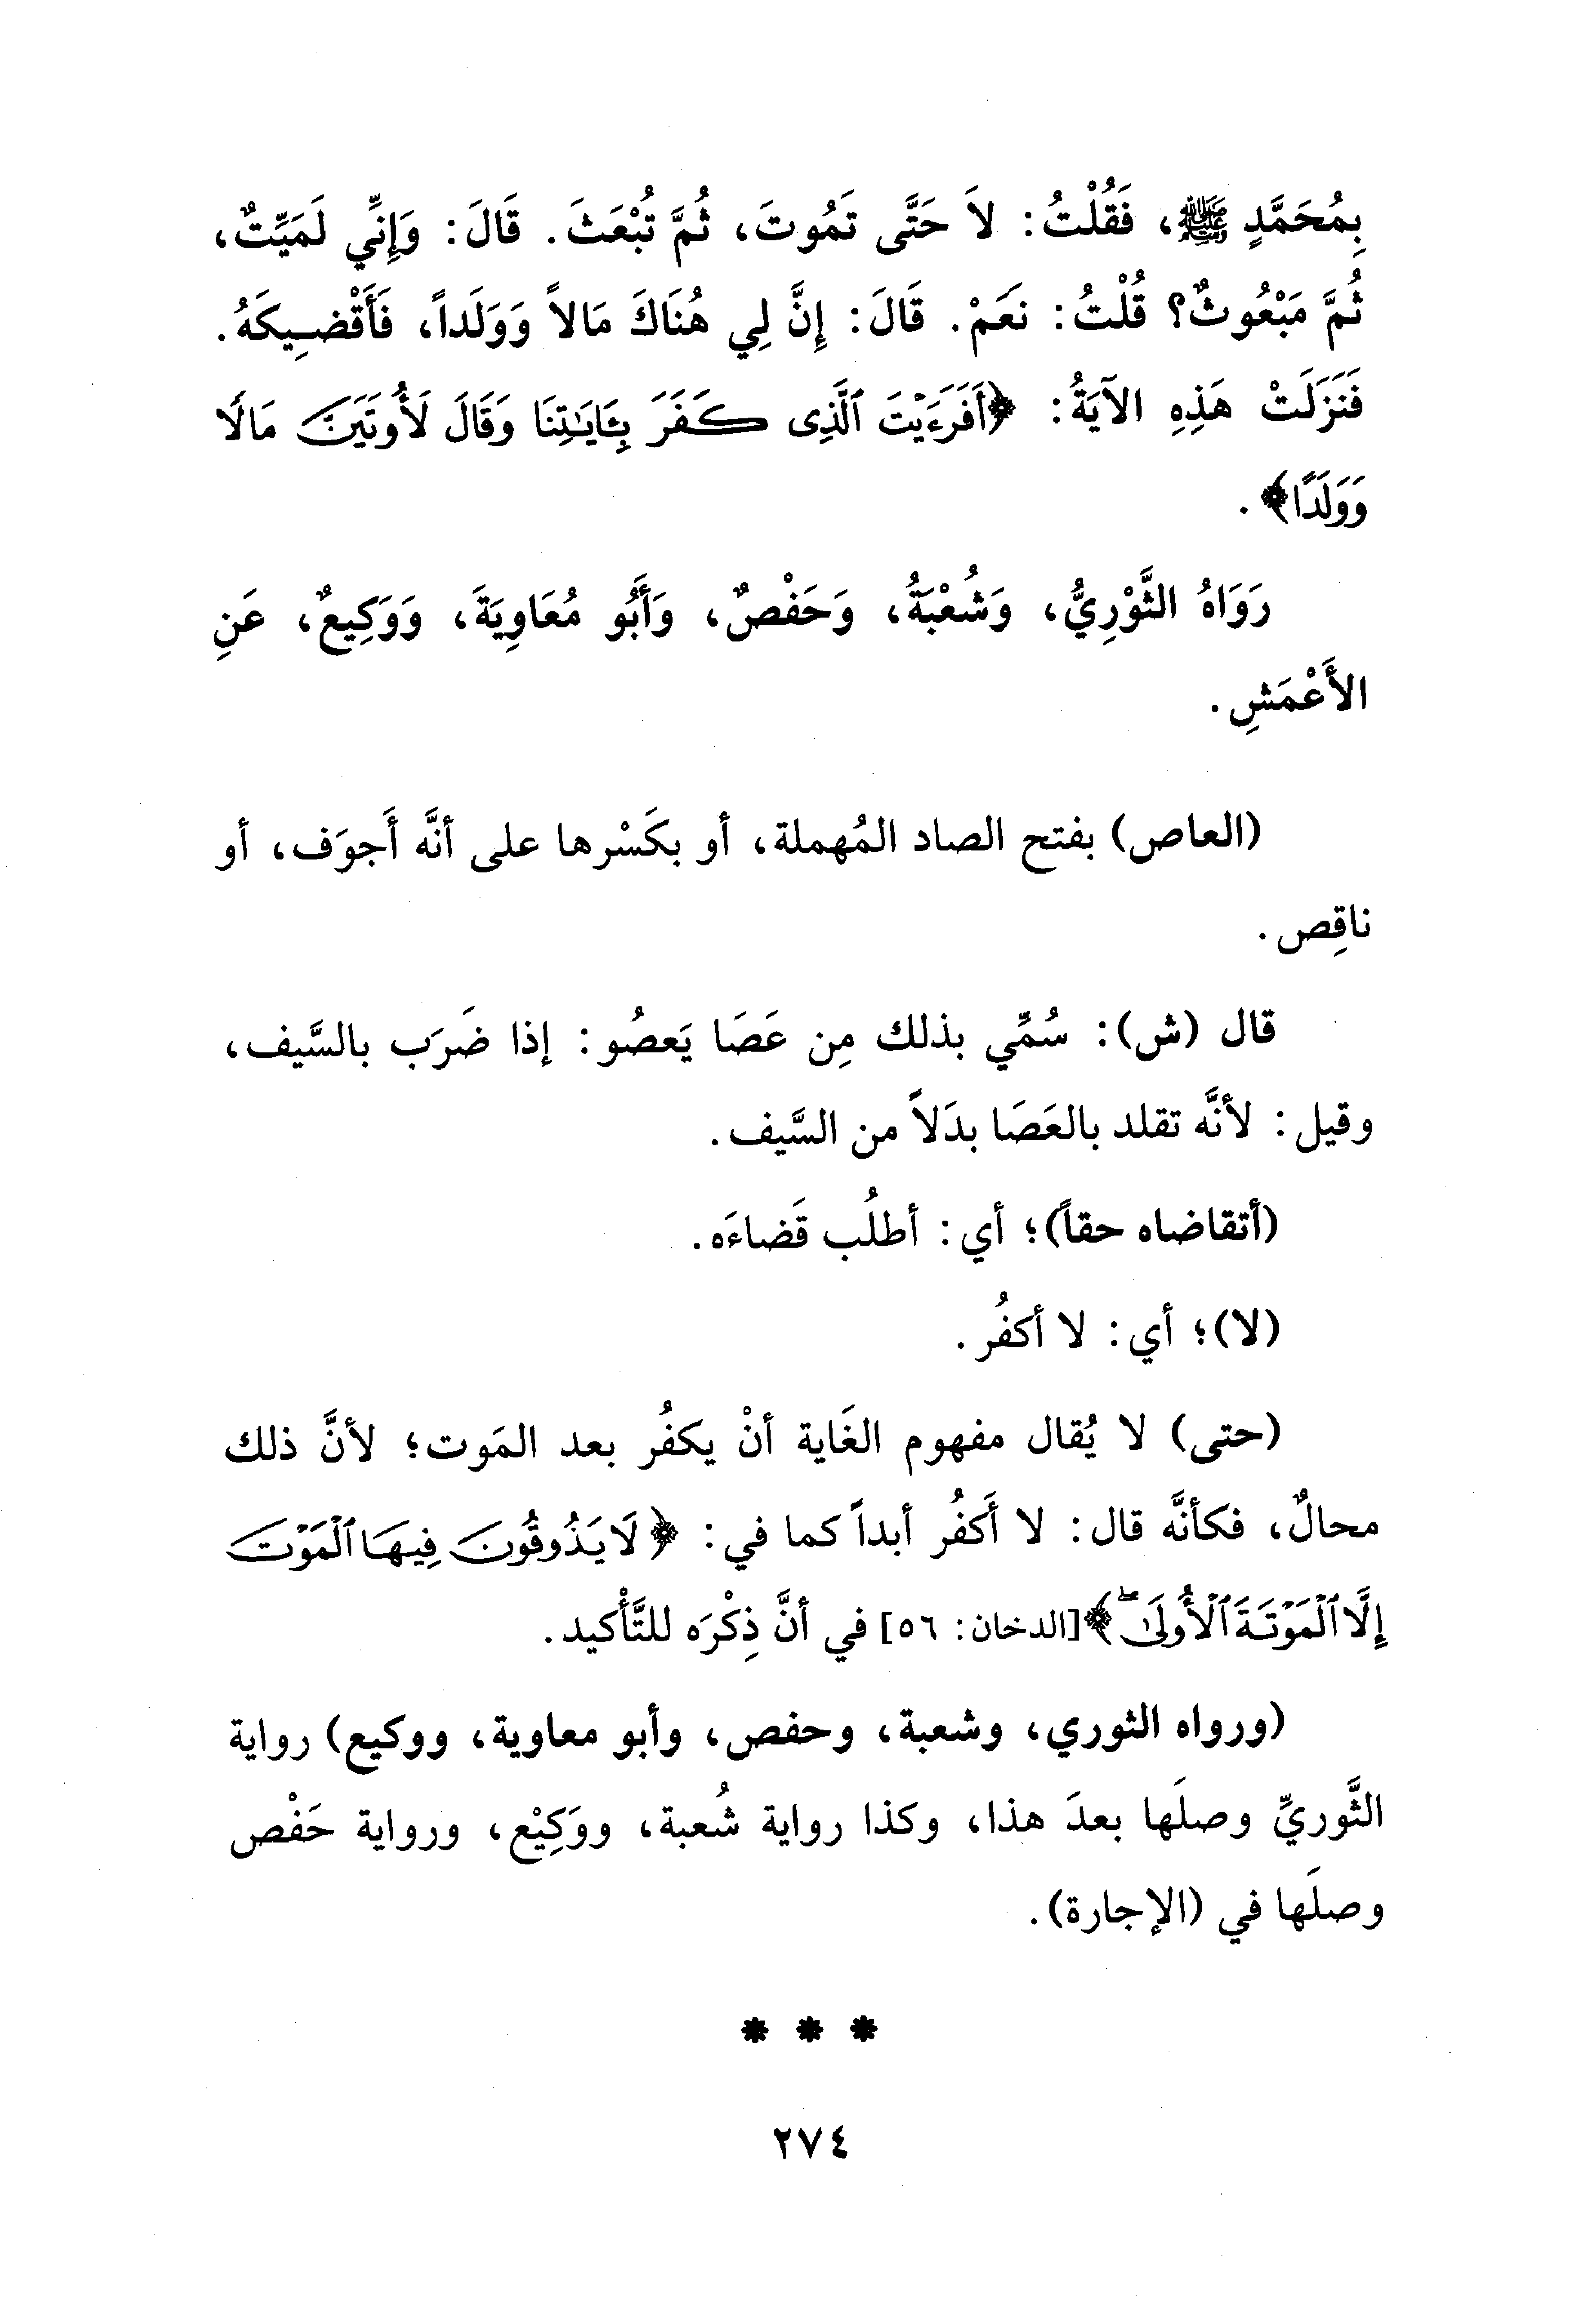 بِمُحَمَّدٍ ﷺ، فَقُلْتُ: لاَ حَتَّى تَمُوتَ، ثُمَّ تُبْعَثَ. قَالَ: وَإِنِّي لَمَيِّتٌ،
ثُمَّ مَبْعُوثٌ؟ قُلْتُ: نَعَمْ. قَالَ: إِنَّ لِي هُنَاكَ مَالاً وَوَلَداً، فَأَقْضِيكَهُ.
فَنَزَلَتْ هَذِهِ الآيَةُ: ﴿أَفَرَءَيْتَ ٱلَّذِى كَفَرَ بِـَٔايَٰتِنَا وَقَالَ لَأُوتَيَنَّ مَالًا
وَوَلَدًا﴾.
رَوَاهُ الثَّوْرِيُّ، وَشُعْبَةُ، وَحَفْصٌ، وَأَبُو مُعَاوِيَةَ، وَوَكِيعٌ، عَنِ
الأَعْمَشِ.
(العاص) بفتح الصاد المُهملة، أو بكَسْرها على أنَّه أَجوَف، أو
ناقِص.
قال (ش): سُمِّي بذلك مِن عَصَا يَعصُو: إذا ضَرَب بالسَّيف،
وقيل: لأنَّه تقلد بالعَصَا بدَلاً من السَّيف.
(أتقاضاه حقاً)؛ أي: أطلُب قَضاءَه.
(لا)؛ أي: لا أكفُر.
(حتى) لا يُقال مفهوم الغَاية أنْ يكفُر بعد المَوت؛ لأنَّ ذلك
محالٌ، فكأنَّه قال: لا أَكفُر أبداً كما في: ﴿لَا يَذُوقُونَ فِيهَا ٱلْمَوْتَ
إِلَّا ٱلْمَوْتَةَ ٱلْأُولَىٰ ۖ﴾[الدخان: ٥٦] في أنَّ ذِكْرَه للتَّأْكيد.
(ورواه الثوري، وشعبة، وحفص، وأبو معاوية، ووكيع) رواية
الثَّوريِّ وصلَها بعدَ هذا، وكذا رواية شُعبة، ووَكِيْع، ورواية حَفْص
وصلَها في (الإجارة).
* * *
٢٧٤